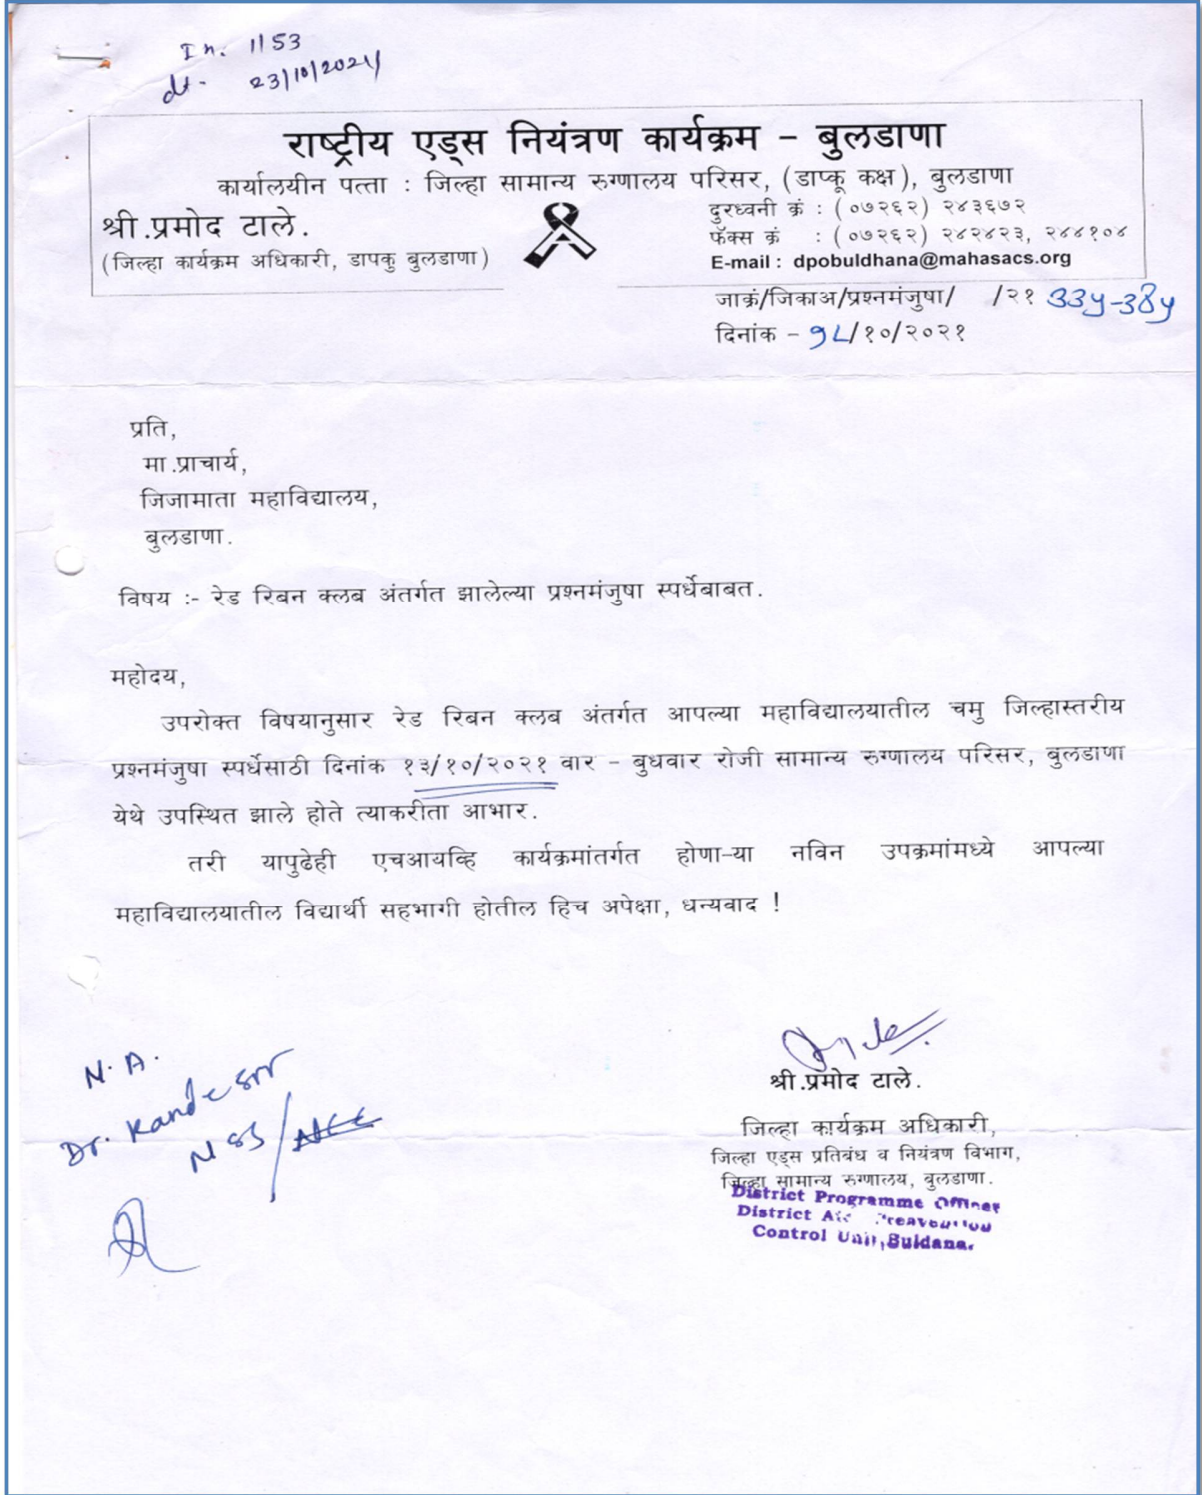 In. 1153
dt- 23/10/2021
राष्ट्रीय एड्स नियंत्रण कार्यक्रम – बुलडाणा
कार्यालयीन पत्ता : जिल्हा सामान्य रुग्णालय परिसर, (डाप्कू कक्ष), बुलडाणा
श्री.प्रमोद टाले.
(जिल्हा कार्यक्रम अधिकारी, डापकु बुलडाणा)
दुरध्वनी क्रं : (०७२६२) २४३६७२
फॅक्स क्रं : (०७२६२) २४२४२३, २४४१०४
E-mail : dpobuldhana@mahasacs.org
जाक्रं/जिकाअ/प्रश्नमंजुषा/ /२१
दिनांक – १८/१०/२०२१
प्रति,
मा.प्राचार्य,
जिजामाता महाविद्यालय,
बुलडाणा.
विषय :- रेड रिबन क्लब अंतर्गत झालेल्या प्रश्नमंजुषा स्पर्धेबाबत.
महोदय,
उपरोक्त विषयानुसार रेड रिबन क्लब अंतर्गत आपल्या महाविद्यालयातील चमु जिल्हास्तरीय
प्रश्नमंजुषा स्पर्धेसाठी दिनांक १३/१०/२०२१ वार – बुधवार रोजी सामान्य रुग्णालय परिसर, बुलडाणा
येथे उपस्थित झाले होते त्याकरीता आभार.
तरी यापुढेही एचआयव्हि कार्यक्रमांतर्गत होणा-या नविन उपक्रमांमध्ये आपल्या
महाविद्यालयातील विद्यार्थी सहभागी होतील हिच अपेक्षा, धन्यवाद !
N. A.
Dr. Kande sir
NSS/NCC
श्री.प्रमोद टाले.
जिल्हा कार्यक्रम अधिकारी,
जिल्हा एड्स प्रतिबंध व नियंत्रण विभाग,
जिल्हा सामान्य रुग्णालय, बुलडाणा.
District Programme Officer
District
Control Unit, Buldana.